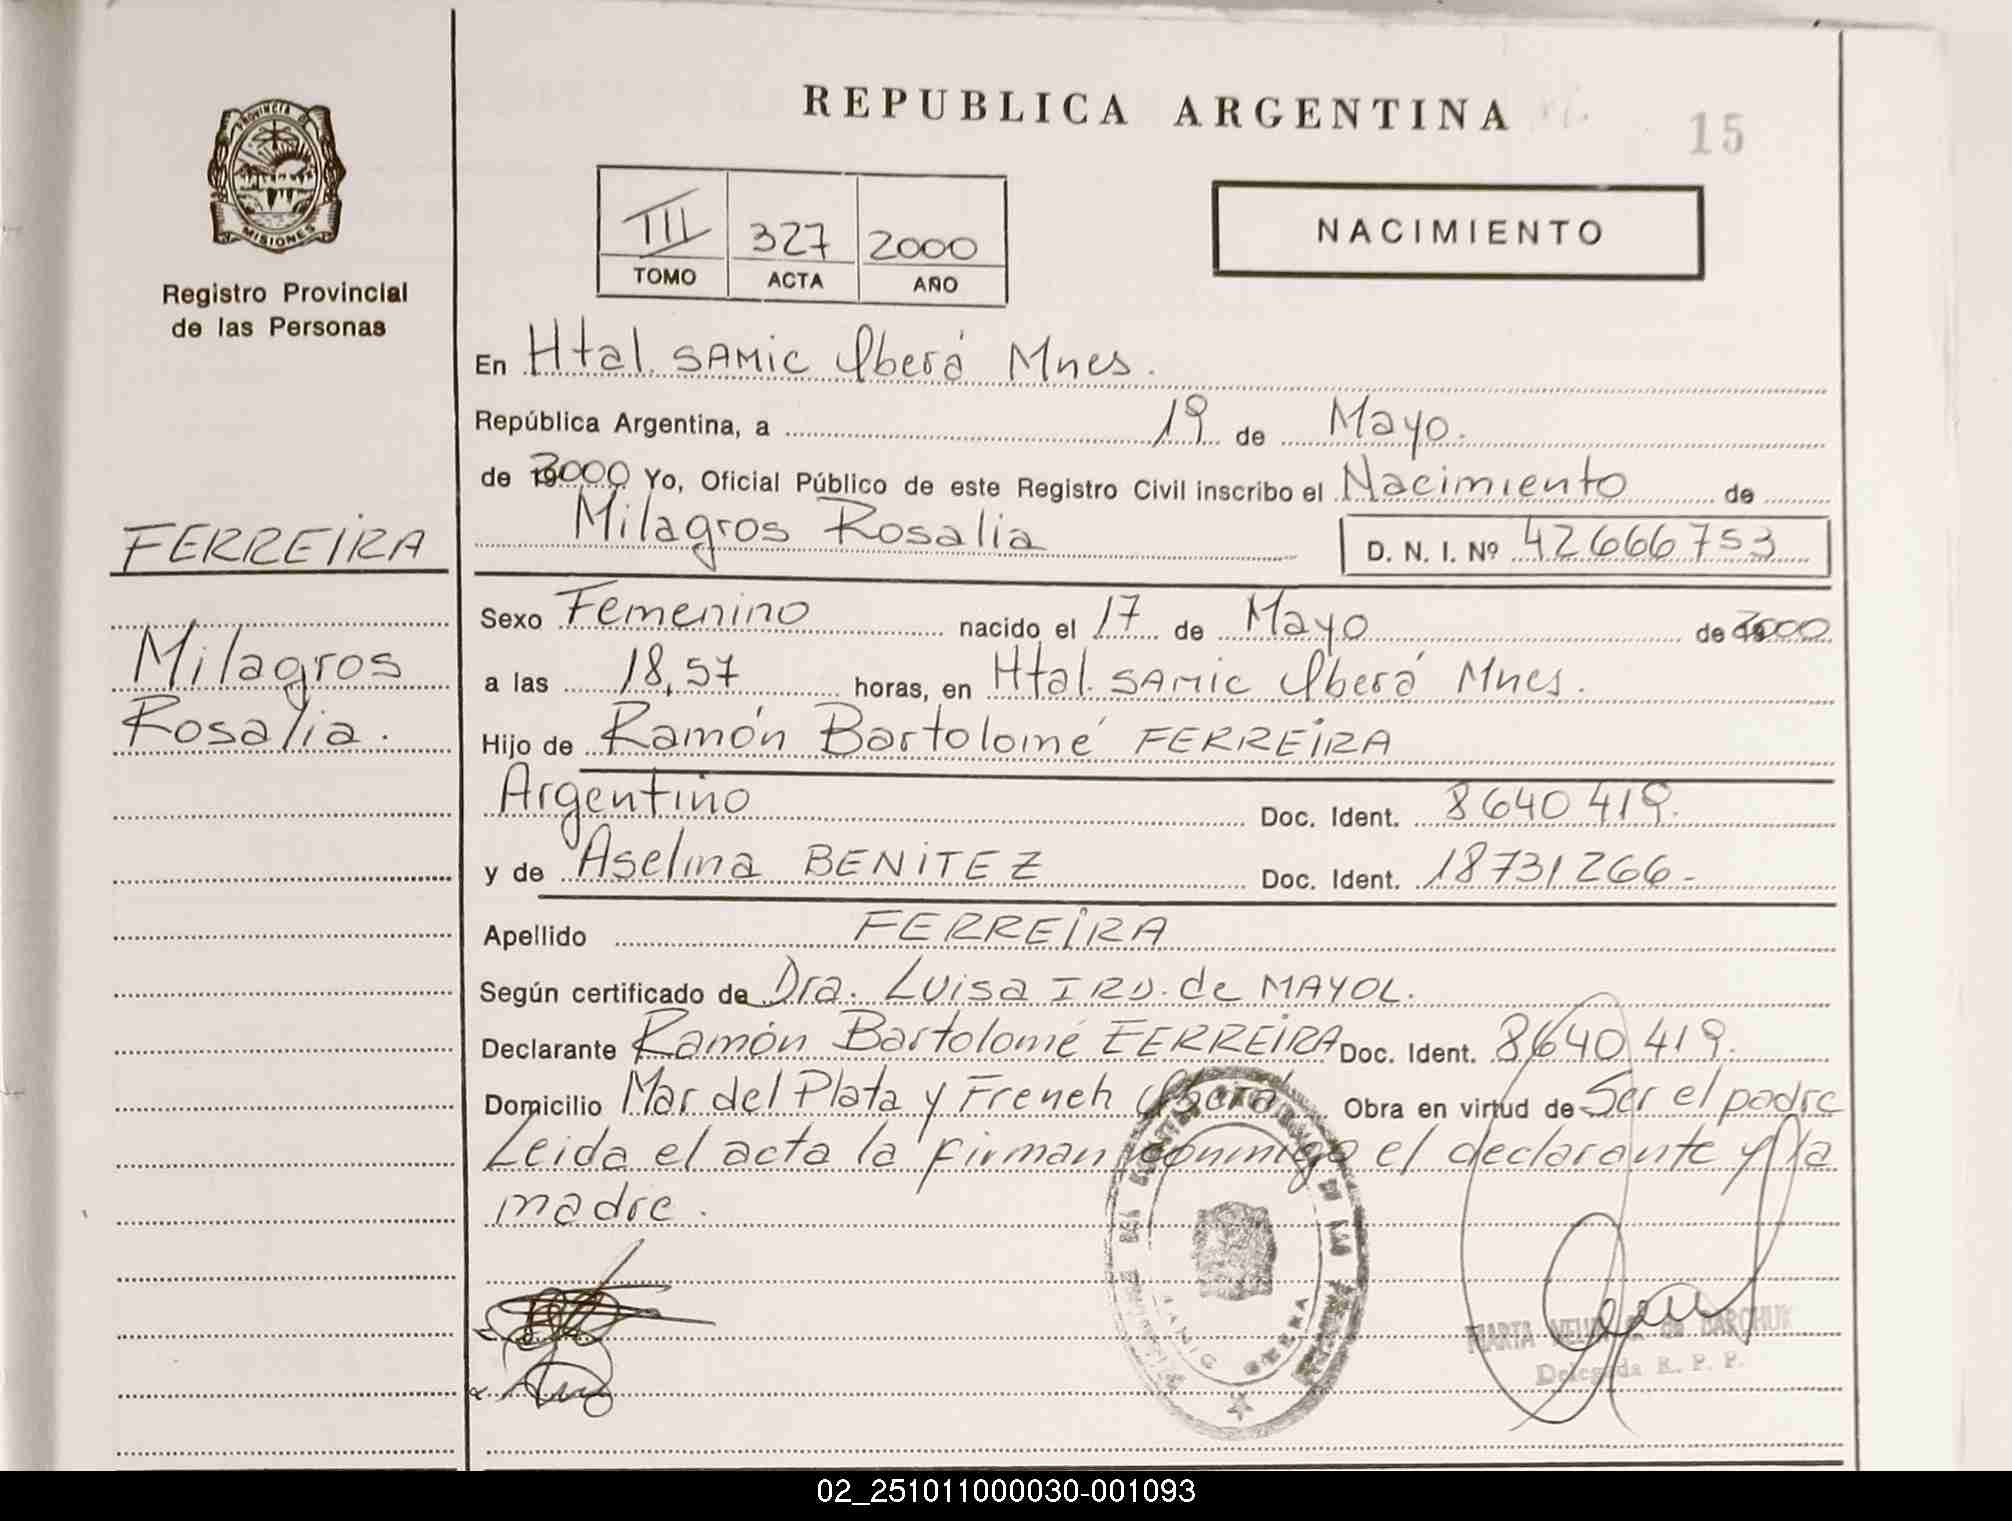 REPUBLICA ARGENTINA
15
PROVINCIA DE
MISIONES
Registro Provincial
de las Personas
III 327 2000
TOMO ACTA AÑO
NACIMIENTO
En Htal. SAMIC Oberá Mnes.
República Argentina, a 19 de Mayo.
de 2000 Yo, Oficial Público de este Registro Civil inscribo el Nacimiento de
Milagros Rosalia D. N. I. Nº 42666753
FERREIRA
Milagros
Rosalia.
Sexo Femenino nacido el 17 de Mayo de 2000
a las 18,57 horas, en Htal. SAMIC Oberá Mnes.
Hijo de Ramón Bartolomé FERREIRA
Argentino Doc. Ident. 8640419.
y de Aselina BENITEZ Doc. Ident. 18731266-
Apellido FERREIRA
Según certificado de Dra. Luisa de MAYOL.
Declarante Ramón Bartolomé FERREIRA Doc. Ident. 8640419.
Domicilio Mar del Plata y French Oberá Obra en virtud de Ser el padre
Leida el acta la firman conmigo el declarante y la
madre.
OBERA
MARTA DE
Delegada R. P. P.
02_251011000030-001093